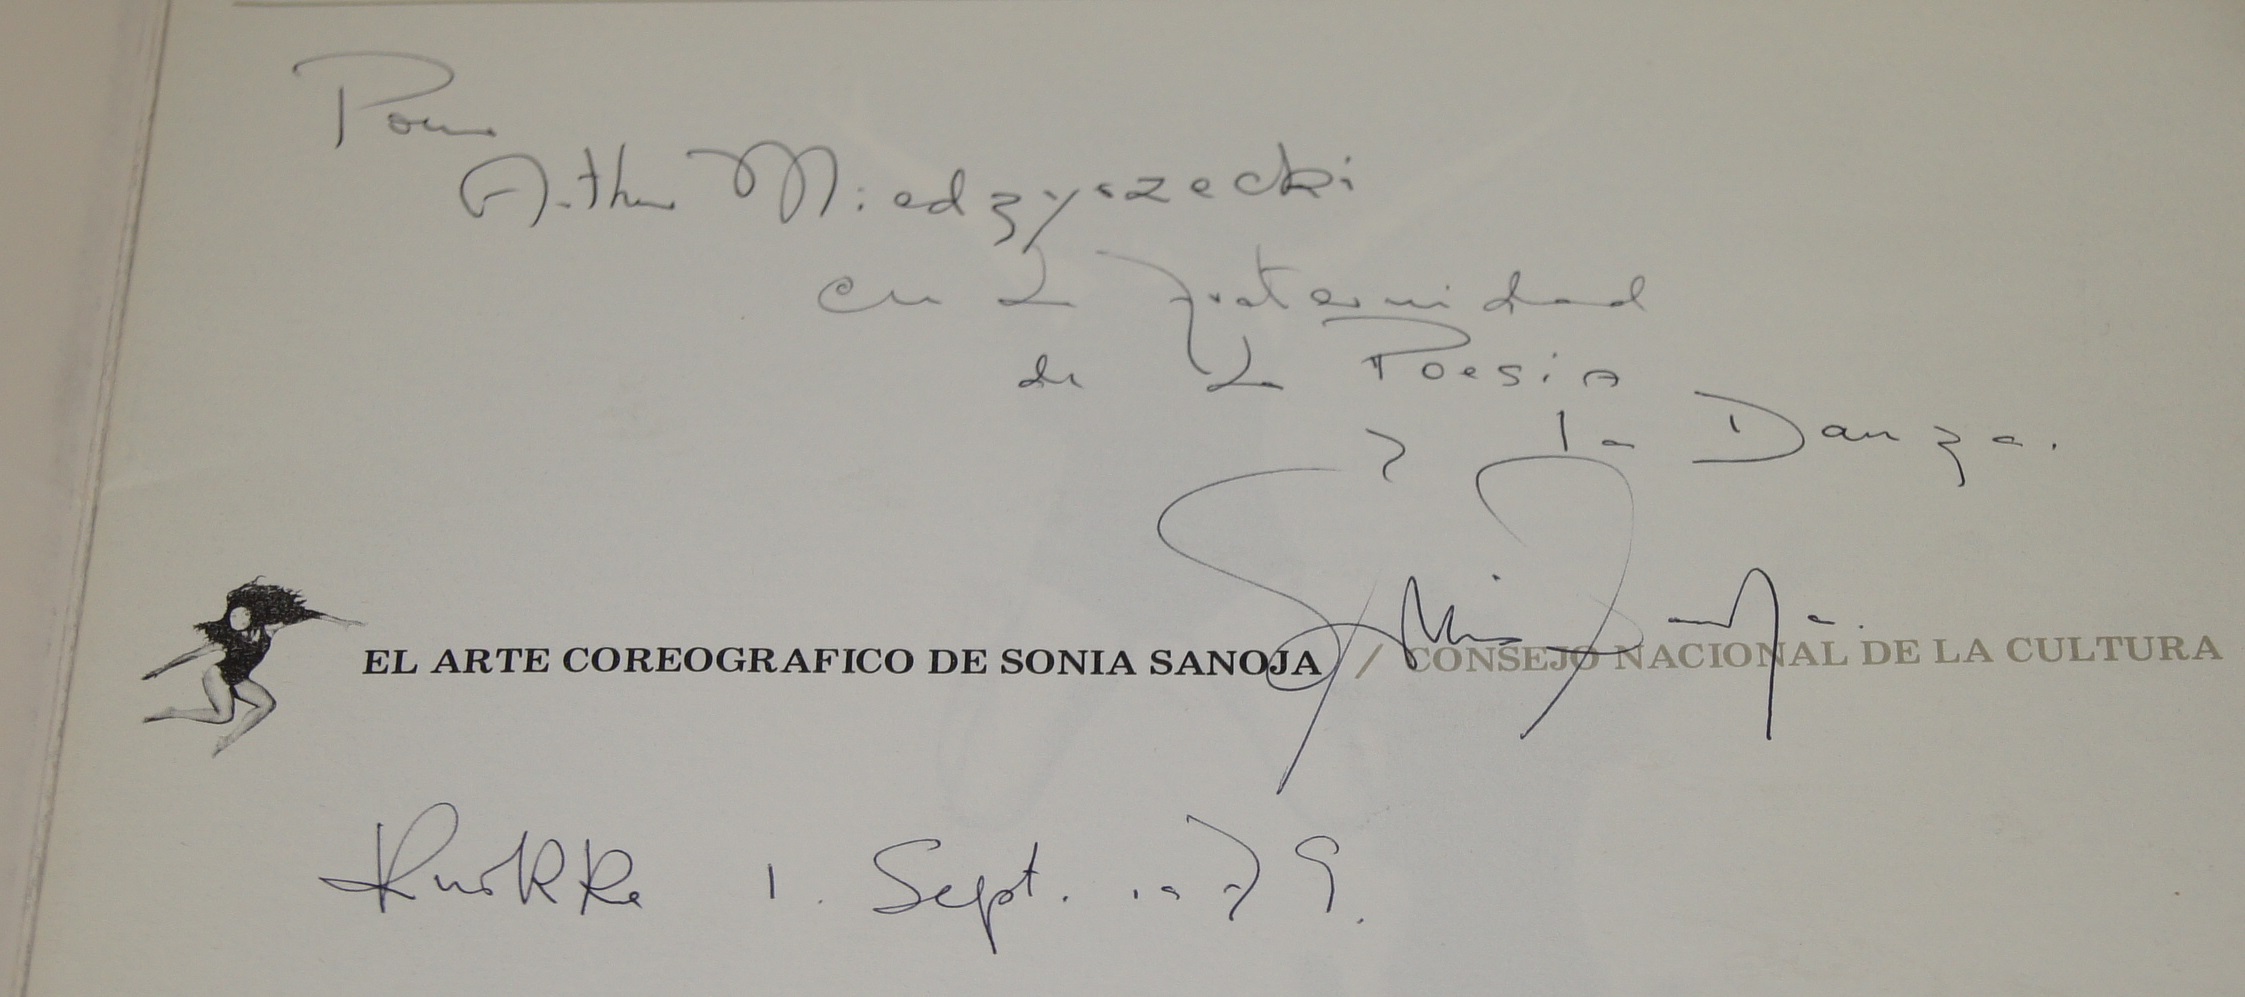 Pour
Arthur Miedzyszecki
en la fraternidad
de la Poesia
y la Danza.
Sonia Sanoja.
EL ARTE COREOGRAFICO DE SONIA SANOJA / CONSEJO NACIONAL DE LA CULTURA
Knokke 1. Sept. 1979.